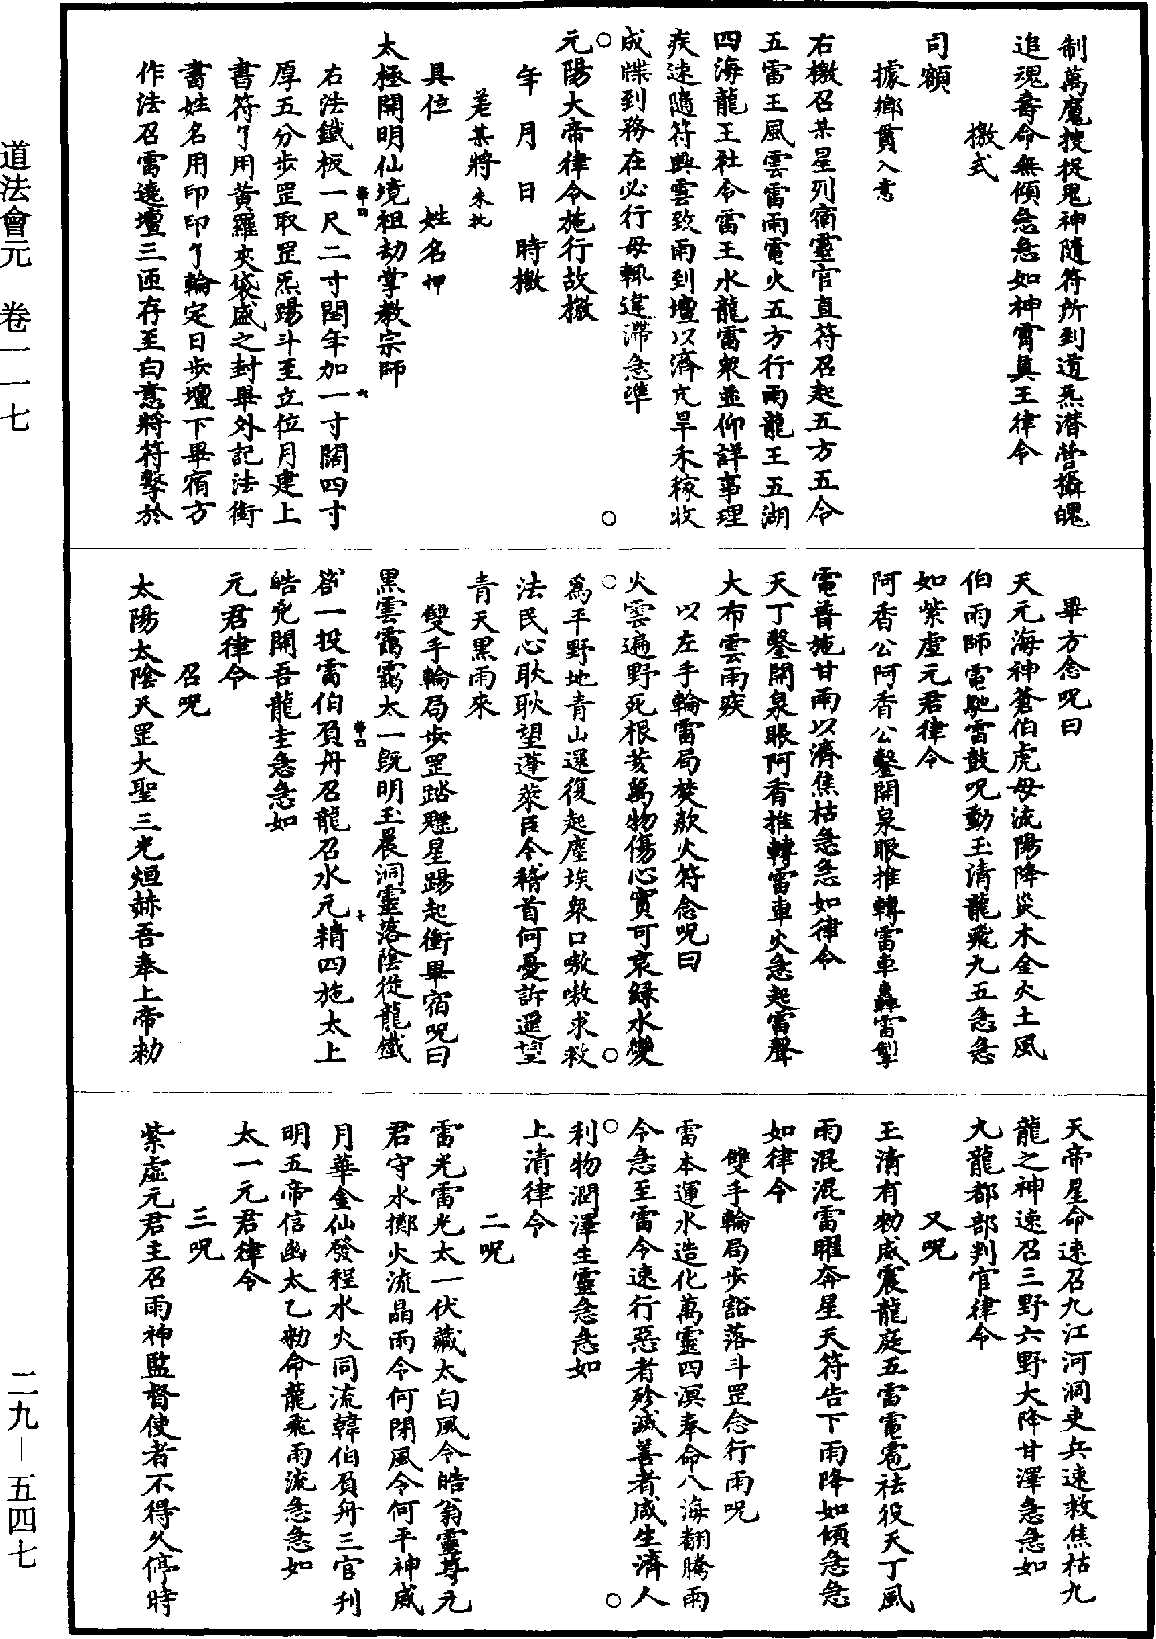 制萬魔搜捉鬼神隨符所到道炁潛營攝魄
追魂壽命無傾急急如神霄真王律令
檄式
司額
據鄉貫入意
右檄召某星列宿靈官直符召起五方五令
五雷王風雲雷雨電火五方行雨龍王五湖
四海龍王社令雷王水龍雷衆並仰詳事理
疾速隨符興雲致雨到壇以濟亢旱禾稼收
成牒到務在必行毋輒違滯急準
元陽大帝律令施行故檄
年月日時檄
差某將朱批
具位姓名押
太極開明仙境祖劫掌教宗師
右法鐵板一尺二寸閏年加一寸闊四寸
厚五分步罡取罡炁踢斗至立位月建上
書符了用黃羅夾袋盛之封畢外記法銜
書姓名用印印了輪定日步壇下畢宿方
作法召雷遶壇三匝存至白意將符擊於
畢方念呪曰
天元海神蒼伯虎母流陽降災木金火土風
伯雨師電馳雷鼓呪動玉清龍飛九五急急
如紫虛元君律令
阿香公阿香公鑿開泉眼推轉雷車轟雷掣
電普施甘雨以濟焦枯急急如律令
天丁鑿開泉眼阿香推轉雷車火急起雷聲
大布雲雨疾
以左手輪雷局焚歘火符念呪曰
火雲遍野死根荄萬物傷心實可哀綠水變
爲平野地青山還復起塵埃衆口嗷嗷求救
法民心耿耿望蓬萊臣今稽首何憂訴遥望
青天黑雨來
雙手輪局步罡踏魁星踢起衝畢宿呪曰
黑雲靄靄太一旣明玉晨洞靈落陰從龍鐵
劄一投雷伯負舟召龍召水元精四施太上
皓皃開吾龍圭急急如
元君律令
召呪
太陽太陰天罡大聖三光烜赫吾奉上帝勑
天帝星命速召九江河洞吏兵速救焦枯九
龍之神速召三野六野大降甘澤急急如
九龍都部判官律令
又呪
王清有勑威震龍庭五雷電雹祛役天丁風
雨混混雷曜奔星天符告下雨降如傾急急
如律令
雙手輪局步豁落斗罡念行雨呪
雷本運水造化萬靈四溟奉命八海翻騰雨
令急至雷令速行惡者殄滅善者咸生濟人
利物潤澤生靈急急如
上清律令
二呪
雷光雷光太一伏藏太白風令皓翁靈尊元
君守水擲火流晶雨令何閉風令何平神威
月華金仙發程水火同流韓伯負舟三官刋
明五帝信幽太乙勑命龍飛雨流急急如
太一元君律令
三呪
紫虛元君主召雨神監督使者不得久停時
道法會元 卷一一七
二九—五四七